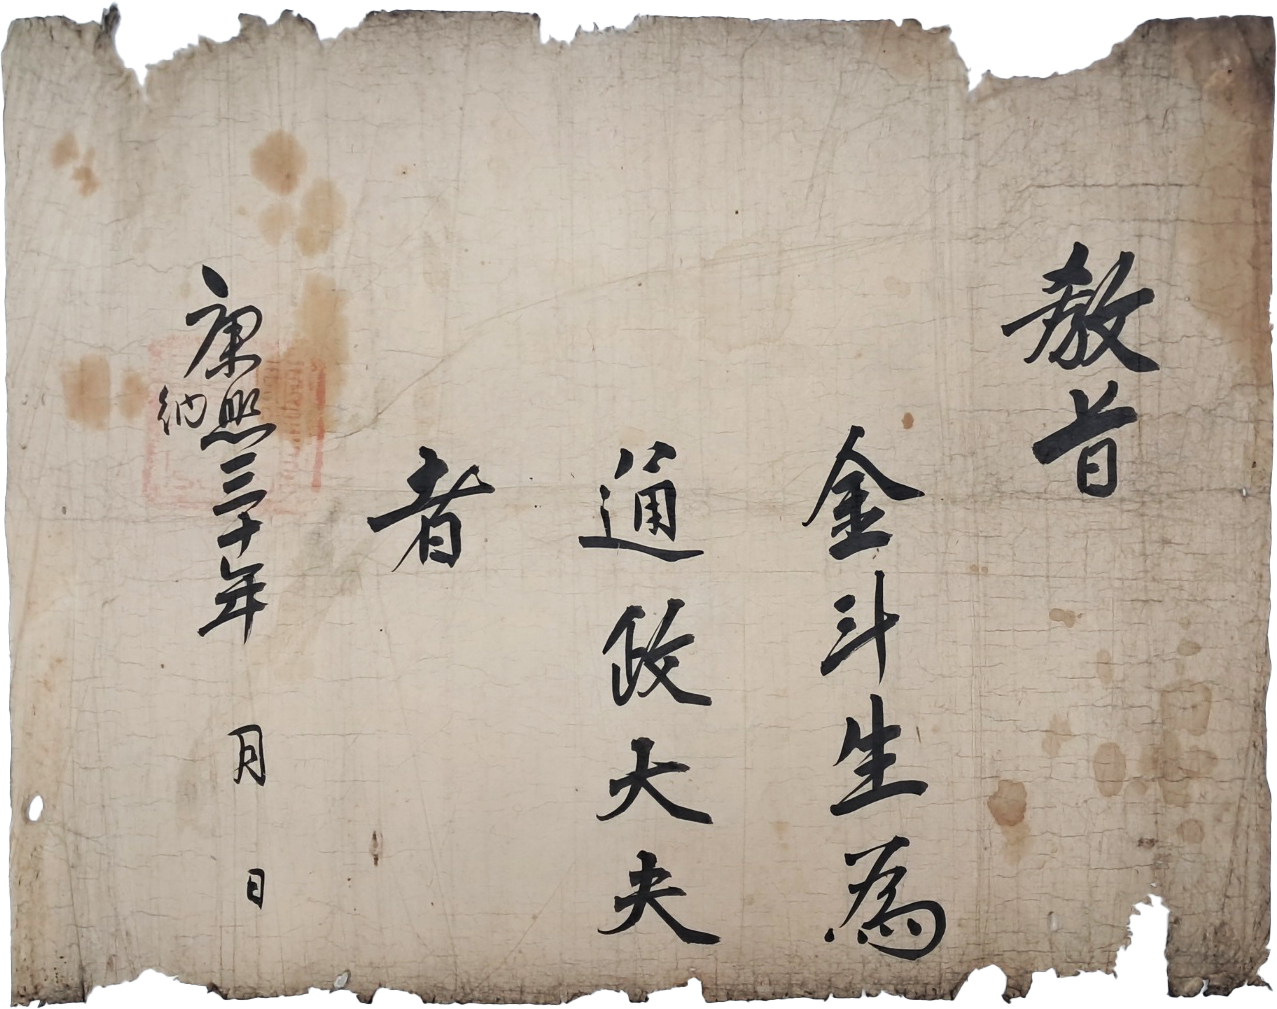 敎旨
金斗生為
通政大夫
者
康熙三十年 月 日
納